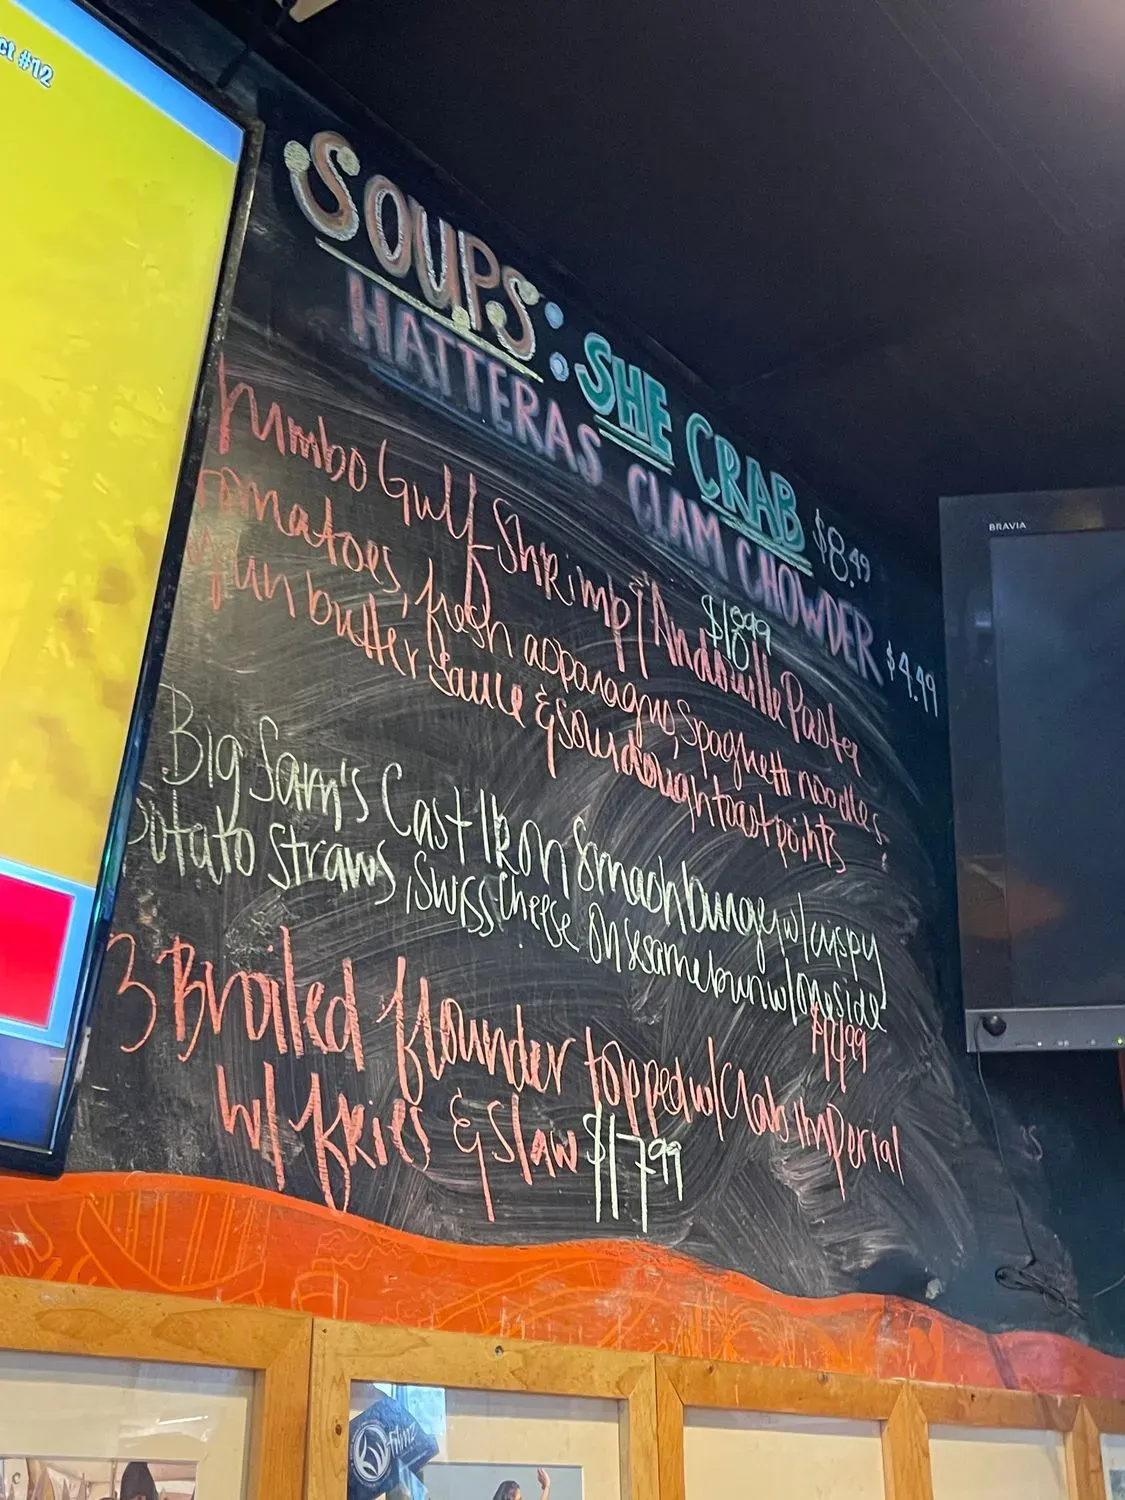 ct #12
SOUPS: SHE CRAB $8.49
HATTERAS CLAM CHOWDER $4.49
Jumbo Gulf Shrimp/Andouille Pasta,
tomatoes, fresh asparagus, spaghetti noodles
in butter sauce & sourdough toast points
$18.99
Big Sam's Cast Iron Smash burger w/ crispy
potato straws, swiss cheese on sesame bun w/ one side
$14.99
3 Broiled flounder topped w/ Crab Imperial
w/ fries & slaw $17.99
BRAVIA
filmz